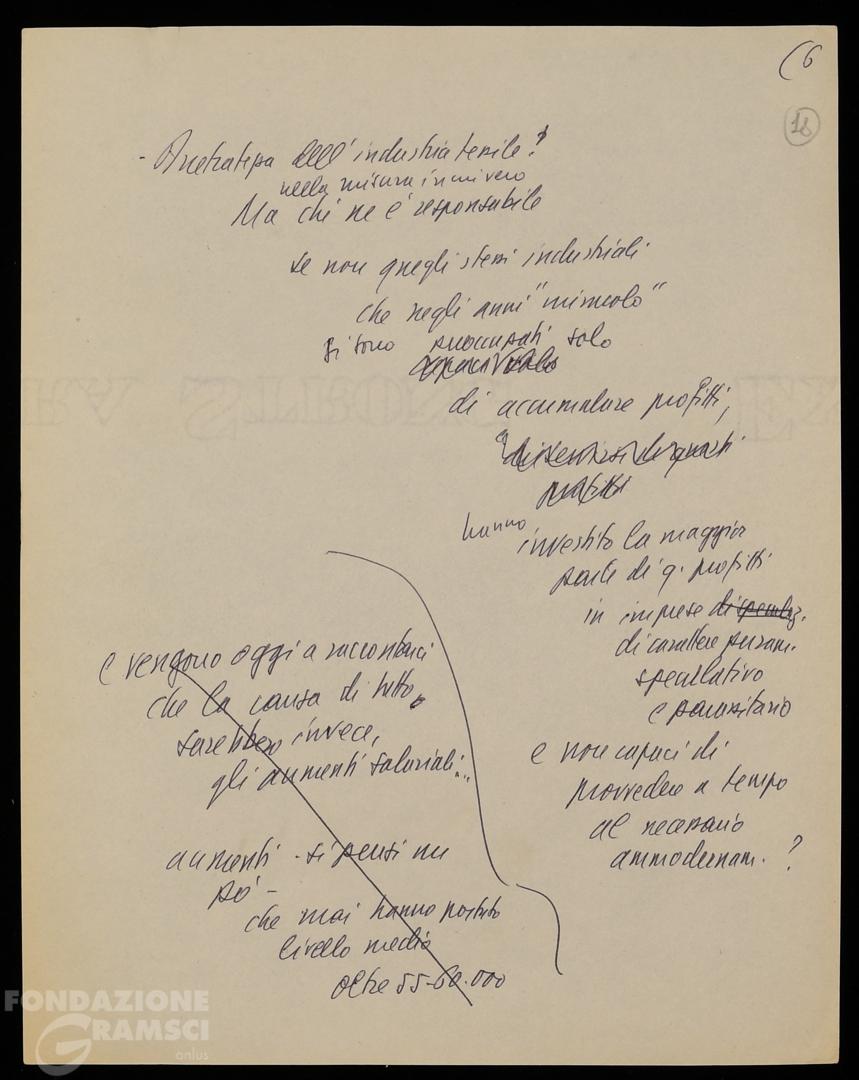 (6
18
- Arretratezza dell'industria tessile?
nella misura in cui è vero
Ma chi ne è responsabile
se non quegli stessi industriali
che negli anni "miracolo"
si sono preoccupati solo
capaci solo
di accumulare profitti,
profitti
hanno
investito la maggior
parte di q. profitti
in imprese di speculaz.
di carattere puram.
speculativo
e parassitario
e non capaci di
provvedere a tempo
al necessario
ammodernam. ?
e vengono oggi a raccontarci
che la causa di tutto
sarebbero invece,
gli aumenti salariali...
aumenti - si pensi un
pò -
che mai hanno portato
livello medio
oltre 55-60.000
FONDAZIONE
GRAMSCI
onlus